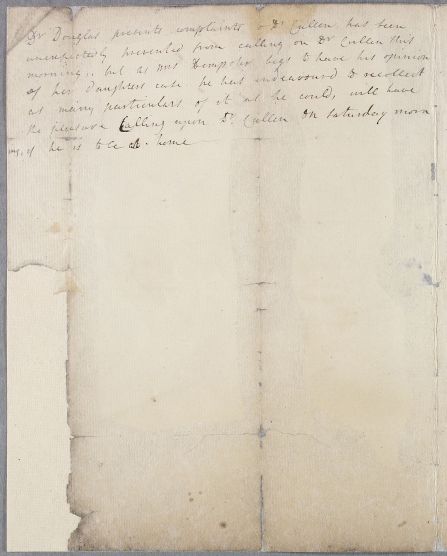 Dr Douglas presents compliments to Dr Cullen has been
unexpectedly prevented from calling on Dr Cullen this
morning, but as Mrs begs to have his opinion
of her Daughters case he has endeavourd to recollect
as many particulars of it as he could, will have
the pleasure Calling upon Dr. Cullen on Saturday morn
ing, if he is to be at home